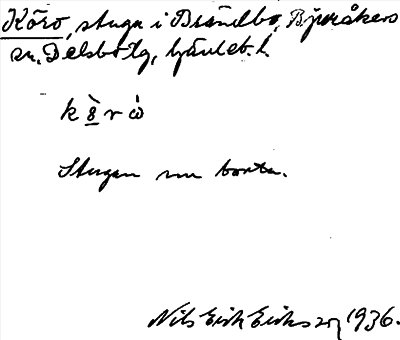 Köro, stuga i Brändbo, Bjuråkers
sn. Delsbo tg, Gävleb. l.
k 8 r ò
Stugan nu borta.
Nils Erik Eriksson 1936.